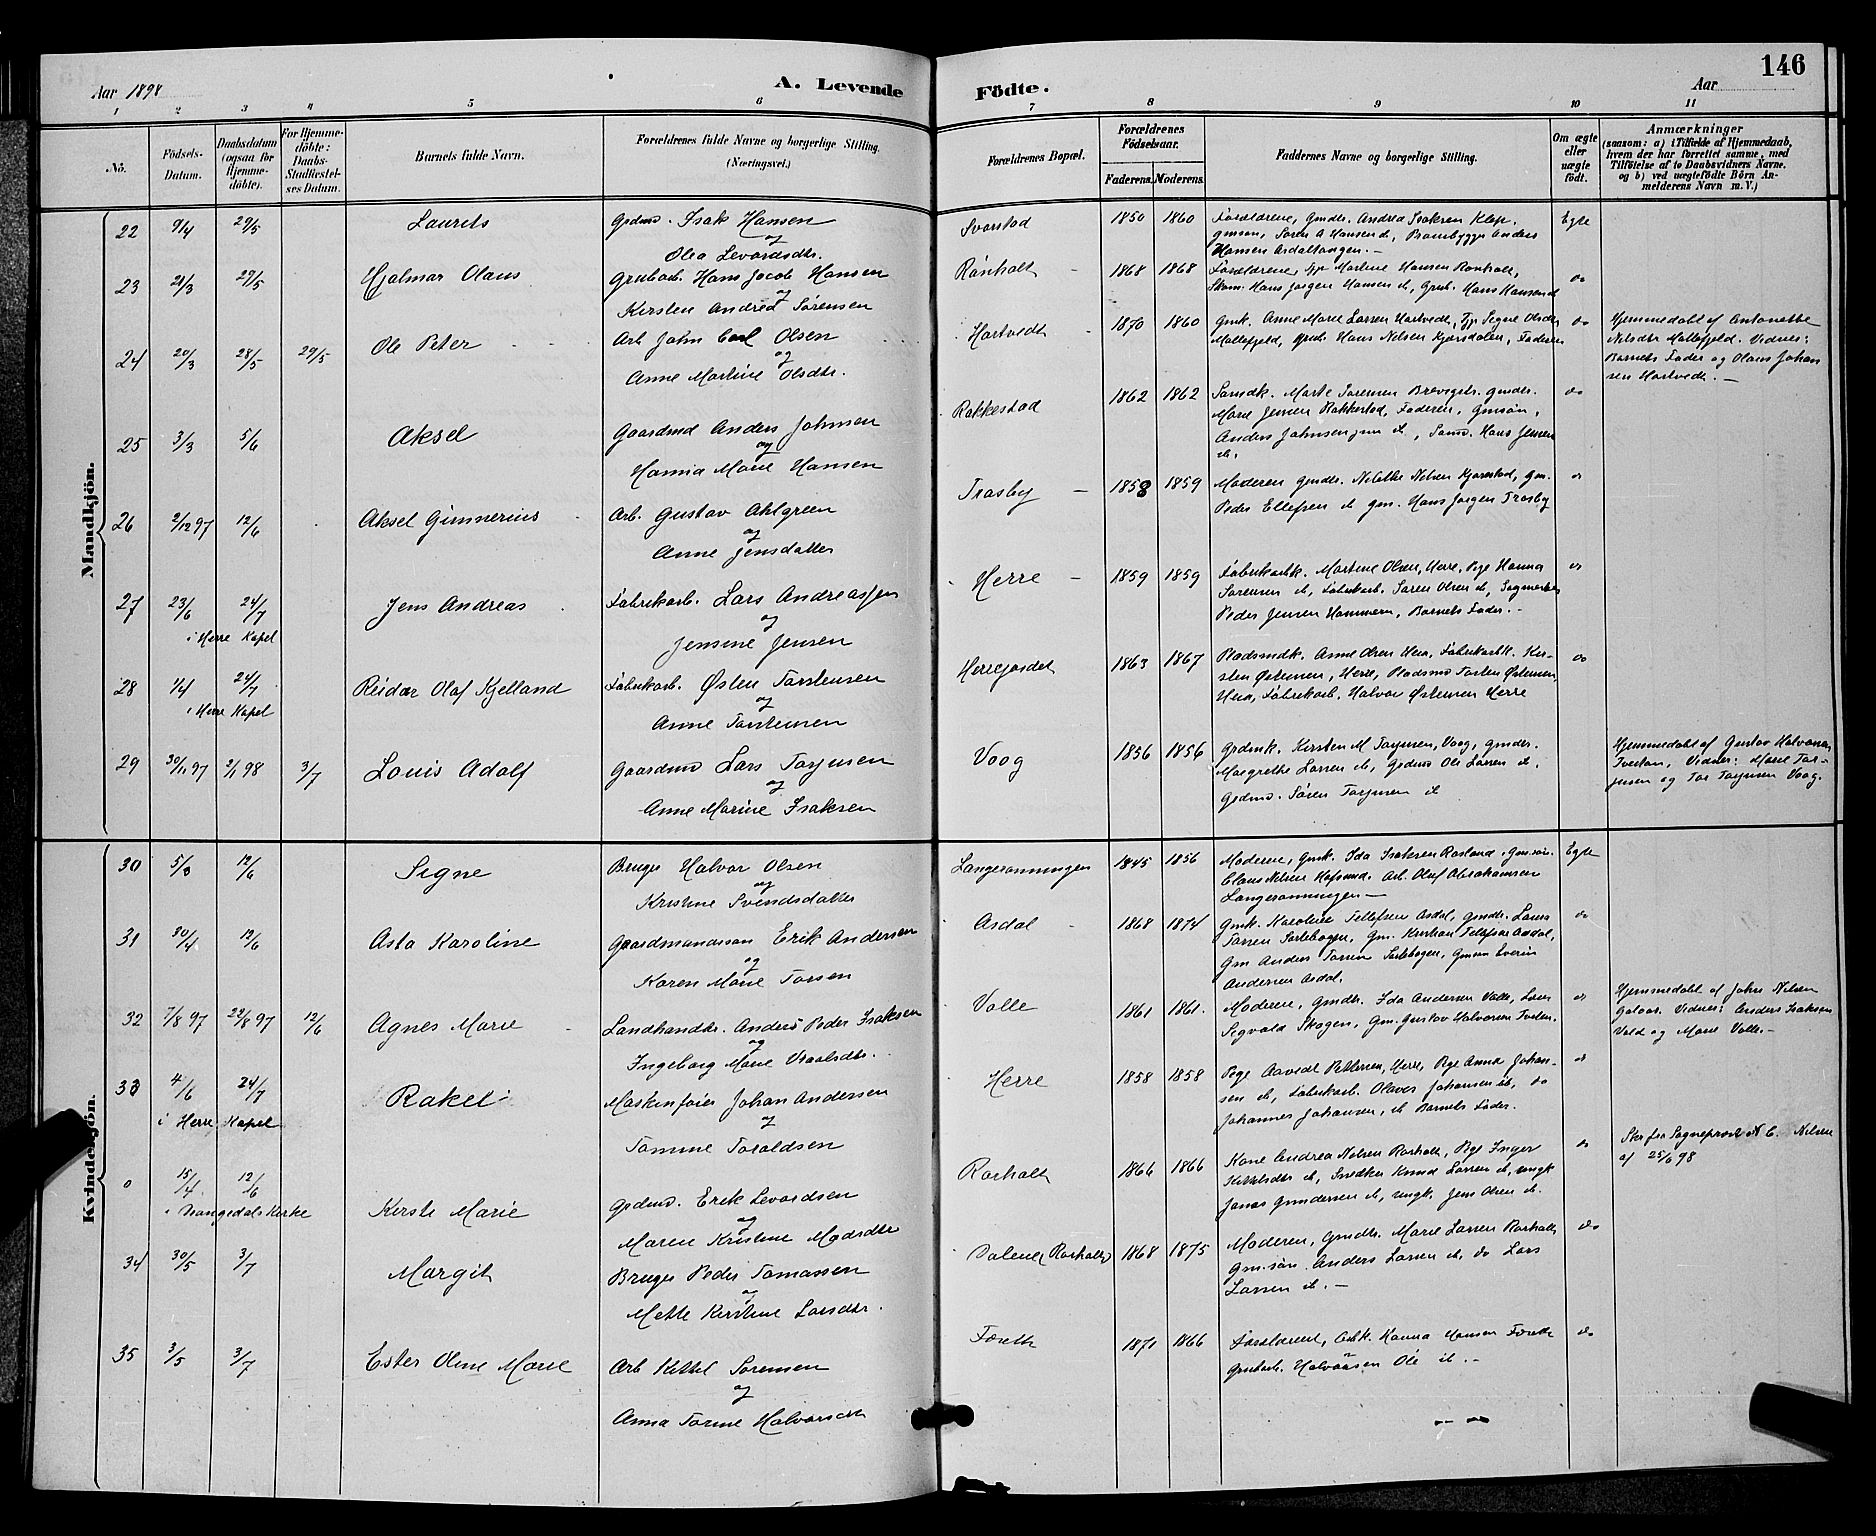 146
Aar 1898
A. Levende Födte.
Aar
1 2 3 4 5 6 7 8 9 10 11
No.
Födsels-Datum.
Daabsdatum (ogsaa for Hjemme-döbte).
For Hjemme-döbte: Daabs-Stadfæstel-ses Datum.
Barnets fulde Navn.
Forældrenes fulde Navne og borgerlige Stilling. (Næringsvei.)
Forældrenes Bopæl.
Forældrenes Födselsaar.
Faderens. Moderens.
Faddernes Navne og borgerlige Stilling.
Om ægte eller uægte födt.
Anmærkninger (saasom: a) i Tilfælde af Hjemmedaab, hvem der har forrettet samme, med Tilföielse af to Daabsvidners Navne. og b) ved uægtefödte Börn An-melderens Navn m. V.)
Mandkjön.
22 9/4 29/5 Laurits Gdmd. Isak Hansen
og
Olea Levordsdtr.
Svarstad 1850 1860 Forældrene, gmdr. Andrea Isaksen Klep,
gmsøn, Søren A Hansen ib, Baadbygger Anders
Hansen Asdaltangen. —
Egte
23 21/3 29/5 Hjalmar Olaus Grubarb. Hans Jacob Hansen
og
Kirsten Andrea Sørensen
Rønholt 1868 1868 Forældrene, Hans Jørgen Hansen ib, Grub. Hans Hansen ib
do
24 20/3 28/5 29/5 Ole Peter Arb John Carl Olsen
og
Anne Martine Olsdtr.
Hartvedt 1870 1860 Gmk. Anne Marie Larsen Hartvedt, Tjp Signe Olsdtr
Hans Nielsen Kjørsdalen, Faderen
do
Hjemmedøbt af Antonette
Nilsdtr Vidner:
Barnets Fader og Olaus Johan
sen Hartvedt. —
25 3/3 5/6 Aksel Gaardmd Anders Johnsen
og
Hanna Marie Hansen
Rakkestad 1862 1862 Marte Sørensen gmdr.
Marie Jensen Rakkestad, Faderen, Gmsøn,
Anders Johnsen ib, Hans Jensen
ib.
do
26 2/12 97 12/6 Aksel Gimmerius Arb. Gustav Ahlgreen
og
Anne Jensdatter
Trosby — 1858 1859 Moderen gmdr. Nielsen Gm.
Peder Ellefsen ib gm. Hans Jørgen Trosby
27 23/6 24/7 Jens Andreas Fabrikarb. Lars Andreassen
i Herre Kapel
og
Jensine Jensen
Herre — 1859 1859 Fabrikarbk. Martine Olsen, Herre, Pige Hanna
Sørensen ib, Fabrikarb. Søren Olsen ib,
Peder Jensen Hammern, Barnets Fader. —
28 1/4 24/7 Reidar Olaf Kjelland Fabrikarb. Østen Torstensen
i Herre Kapel
og
Anne Torstensen
1863 1867 Pladsmdk. Anne Olsen Heia, Fabrikarbk. Kir-
sten Østensen, Herre, Pladsmd Torsten Østensen
Heia, Fabrikarb. Halvor Østensen Herre
do
29 30/11 97 2/1 98 3/7 Louis Adolf Gaardmd Lars Torjusen
og
Anne Marine Isaksen
Voog 1856 1856 Grdmk. Kirsten M Torjusen, Voog, gmdr.
Margrethe Larsen ib, Gdmd Ole Larsen ib,
Gdmd. Søren Torjusen ib
Hjemmedøbt af Gustav Halvorsen
Tveten, Vidner: Marie Tor-
jusen og Tor Torjusen Voog.
Kvindekjön.
30 12/6 Signe Bruger Halvor Olsen
og
Kristine Svendsdatter
Langesanningen 1845 1856 Moderen, Gmk. Ida Isaksen Gm.søn.
Claus Nilsen Arb. Oluf Abrahamsen
Langesanningen —
Egte
31 30/4 12/6 Asta Karoline Gaardmandssøn Erik Andersen
og
Karen Marie Torsen
Asdal 1868 1874 Gmk. Karoline Tellefsen Asdal, gmdr. Laura
Torsen Gm. Kristian Tellefsen Asdal,
Gm Anders Torsen Gmsøn Everin
Andersen Asdal.
do
32 7/8 97 22/8 97 12/6 Agnes Marie Landhandlr. Anders Peder Isaksen
og
Ingeborg Marie
Valle 1861 1861. Moderen, gmdr. Ida Andersen Valle,
Sigvald Skogen, Gm. Gustav Halvorsen Tveten.
Hjemmedøbt af John Nilsen
Vidner: Anders Isaksen
Vold og Marie Valle. —
33 4/6 24/7 Rakel Johan Andersen
i Herre Kapel
og
Tomine Toraldsen
Herre 1858 1858 Pige Pettersen, Herre, Pige Anna Johan-
sen ib, Fabrikarb. Olaves Johansen ib, do
Johannes Johansen, ib Barnets Fader.
0 15/4 12/6 Kirste Marie Gdmd. Erik Levordsen
i Drangedals Kirke
og
Maren Kristine Madsdtr
Rørholt 1866 1866 Kone Andrea Nilsen Rørholt, Pige Inger
Kittilsdtr ib, Snedker Knud Larsen ib, ungk
Jonas Gundersen ib, ungk. Jens Olsen ib.
do
N. C. Nielsen
af 25/6 98
34 30/5 3/7 Margit Bruger Peder Tomassen
og
Mette Kirstine Larsdtr.
Dalene (Rørholt) 1868 1875 Moderen, gmdtr. Marie Larsen Rørholt,
Gm.søn. Anders Larsen ib, do Lars
Larsen ib. —
do
35 3/5 3/7 Ester Oline Marie Arb Kittel Sørensen
og
Anna Torine Halvorsen
Foreth 1871 1866 Forældrene, Hanna Hansen
Halvorsen Ole ib. —
do